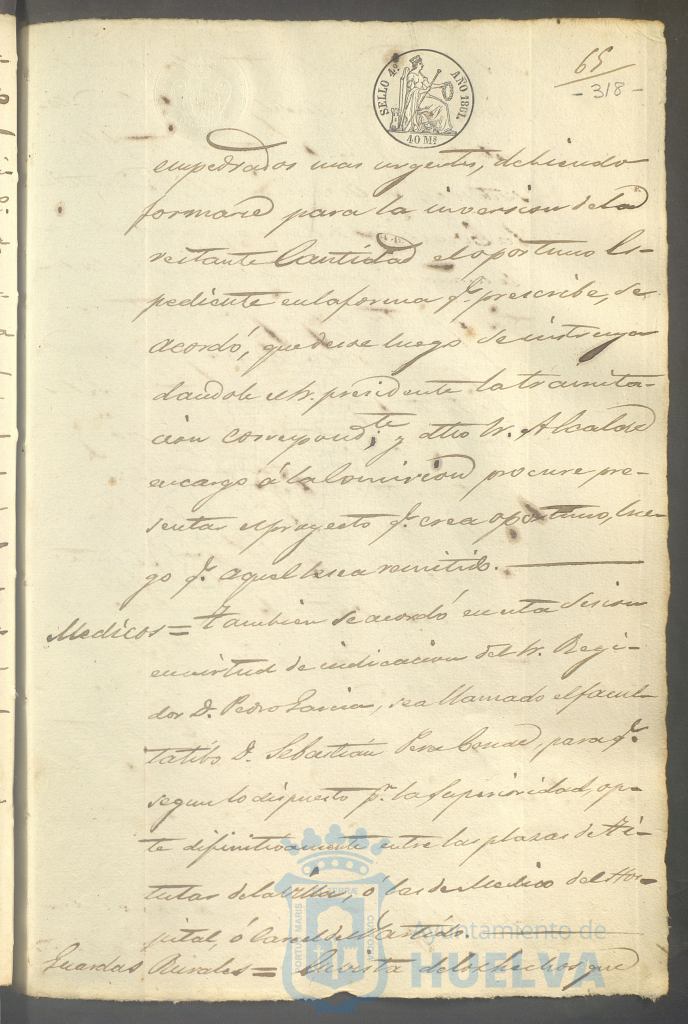 65
- 318 -
SELLO 4.º AÑO 1861.
40 Ms
empedrados mas urgentes, debiendo
formarse para la inversion de la
restante Cantidad el oportuno Es-
pediente en la forma q.e prescribe, se
acordó, que desde luego se instruya
dandole el Sr. presidente la tramita-
cion correspond.te y dho Sr. Alcalde
encargó á la Comision procure pre-
sentar el proyecto q.e crea oportuno, lue-
go q.e aquel le sea remitido.
Medicos = Tambien se acordó en esta sesion
en virtud de indicacion del Sr. Regi-
dor D. Pedro Garcia, sea llamado el facul-
tatibo D. Sebastian Pere Conde, para q.e
segun lo dispuesto p.r la Superioridad, op-
te difinitivamente entre las plazas de Ti-
tular de la Villa, ó las de Medico del Hos-
pital, ó Carcel del Partido.
Guardas Rurales = En vista de los hechos que
PORTUS MARIS ET TERRAE CUSTODIA
Ayuntamiento de
HUELVA